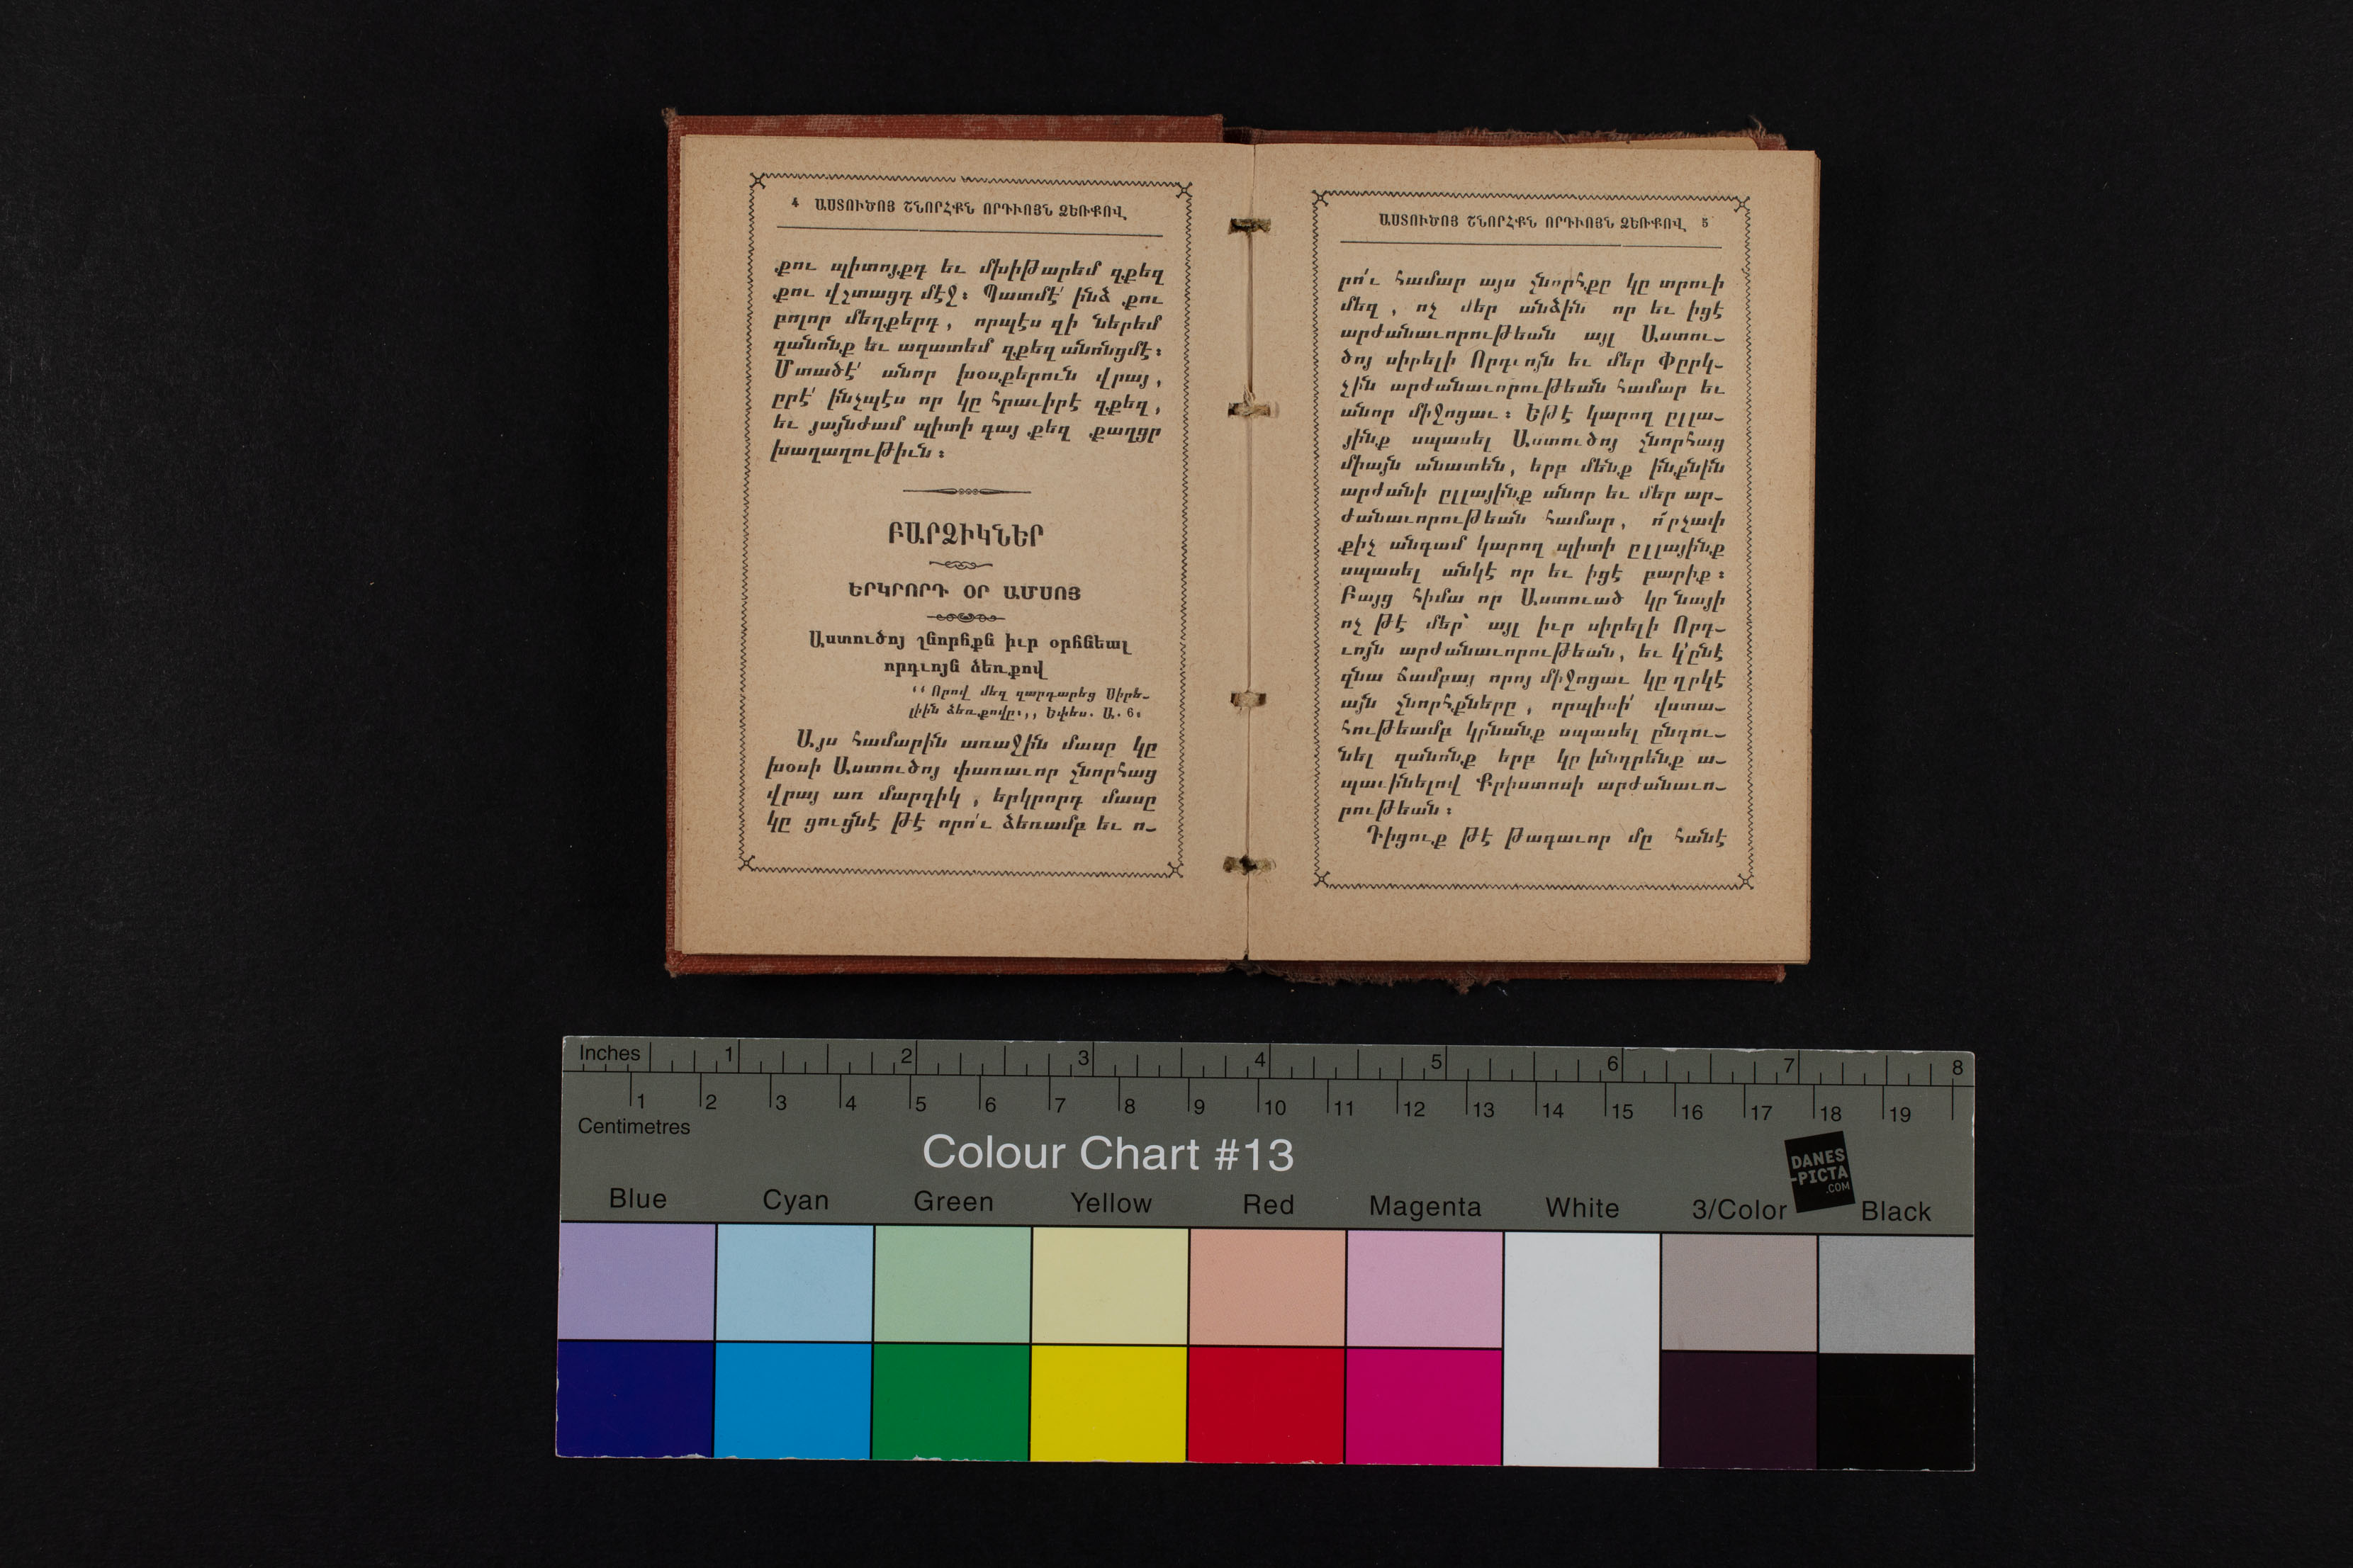 4 ԱՍՏՈՒԾՈՅ ՇՆՈՐՀՔՆ ՈՐԴԻՈՅՆ ՁԵՌՔՈՎ
քու պիտոյքդ եւ մխիթարեմ զքեզ
քու վշտացդ մէջ։ Պատմէ՛ ինձ քու
բոլոր մեղքերդ, որպէս զի ներեմ
զանոնք եւ ազատեմ զքեզ անոնցմէ։
Մտածէ՛ անոր խօսքերուն վրայ,
ըրէ՛ ինչպէս որ կը հրաւիրէ զքեզ,
եւ յայնժամ պիտի գայ քեզ քաղցր
խաղաղութիւն։
ԲԱՐՁԻԿՆԵՐ
ԵՐԿՐՈՐԴ ՕՐ ԱՄՍՈՅ
Աստուծոյ շնորհքն իւր օրհնեալ
որդւոյն ձեռքով
‘‘Որով մեզ զարդարեց Սիրե-
լիին ձեռքովը։,, Եփես. Ա. 6։
Այս համարին առաջին մասը կը
խօսի Աստուծոյ փառաւոր շնորհաց
վրայ առ մարդիկ, երկրորդ մասը
կը ցուցնէ թէ որո՛ւ ձեռամբ եւ ո-
ԱՍՏՈՒԾՈՅ ՇՆՈՐՀՔՆ ՈՐԴԻՈՅՆ ՁԵՌՔՈՎ 5
րո՛ւ համար այս շնորհքը կը տրուի
մեզ, ոչ մեր անձին որ եւ իցէ
արժանաւորութեան այլ Աստու-
ծոյ սիրելի Որդւոյն եւ մեր Փըրկ-
չին արժանաւորութեան համար եւ
անոր միջոցաւ։ Եթէ կարող ըլլա-
յինք սպասել Աստուծոյ շնորհաց
միայն անատեն, երբ մենք ինքնին
արժանի ըլլայինք անոր եւ մեր ար-
ժանաւորութեան համար, ո՜րչափ
քիչ անգամ կարող պիտի ըլլայինք
սպասել անկէ որ եւ իցէ բարիք։
Բայց հիմա որ Աստուած կը նայի
ոչ թէ մեր՝ այլ իւր սիրելի Որդ-
ւոյն արժանաւորութեան, եւ կ՚ընէ
զնա ճամբայ որոյ միջոցաւ կը ղրկէ
այն շնորհքները, որպիսի՛ վստա-
հութեամբ կրնանք սպասել ընդու-
նել զանոնք երբ կը խնդրենք ա-
պաւինելով Քրիստոսի արժանաւո-
րութեան։
Դիցուք թէ թագաւոր մը հանէ
Inches 1 2 3 4 5 6 7 8
1 2 3 4 5 6 7 8 9 10 11 12 13 14 15 16 17 18 19
Centimetres
Colour Chart #13
DANES
-PICTA
.COM
Blue Cyan Green Yellow Red Magenta White 3/Color Black